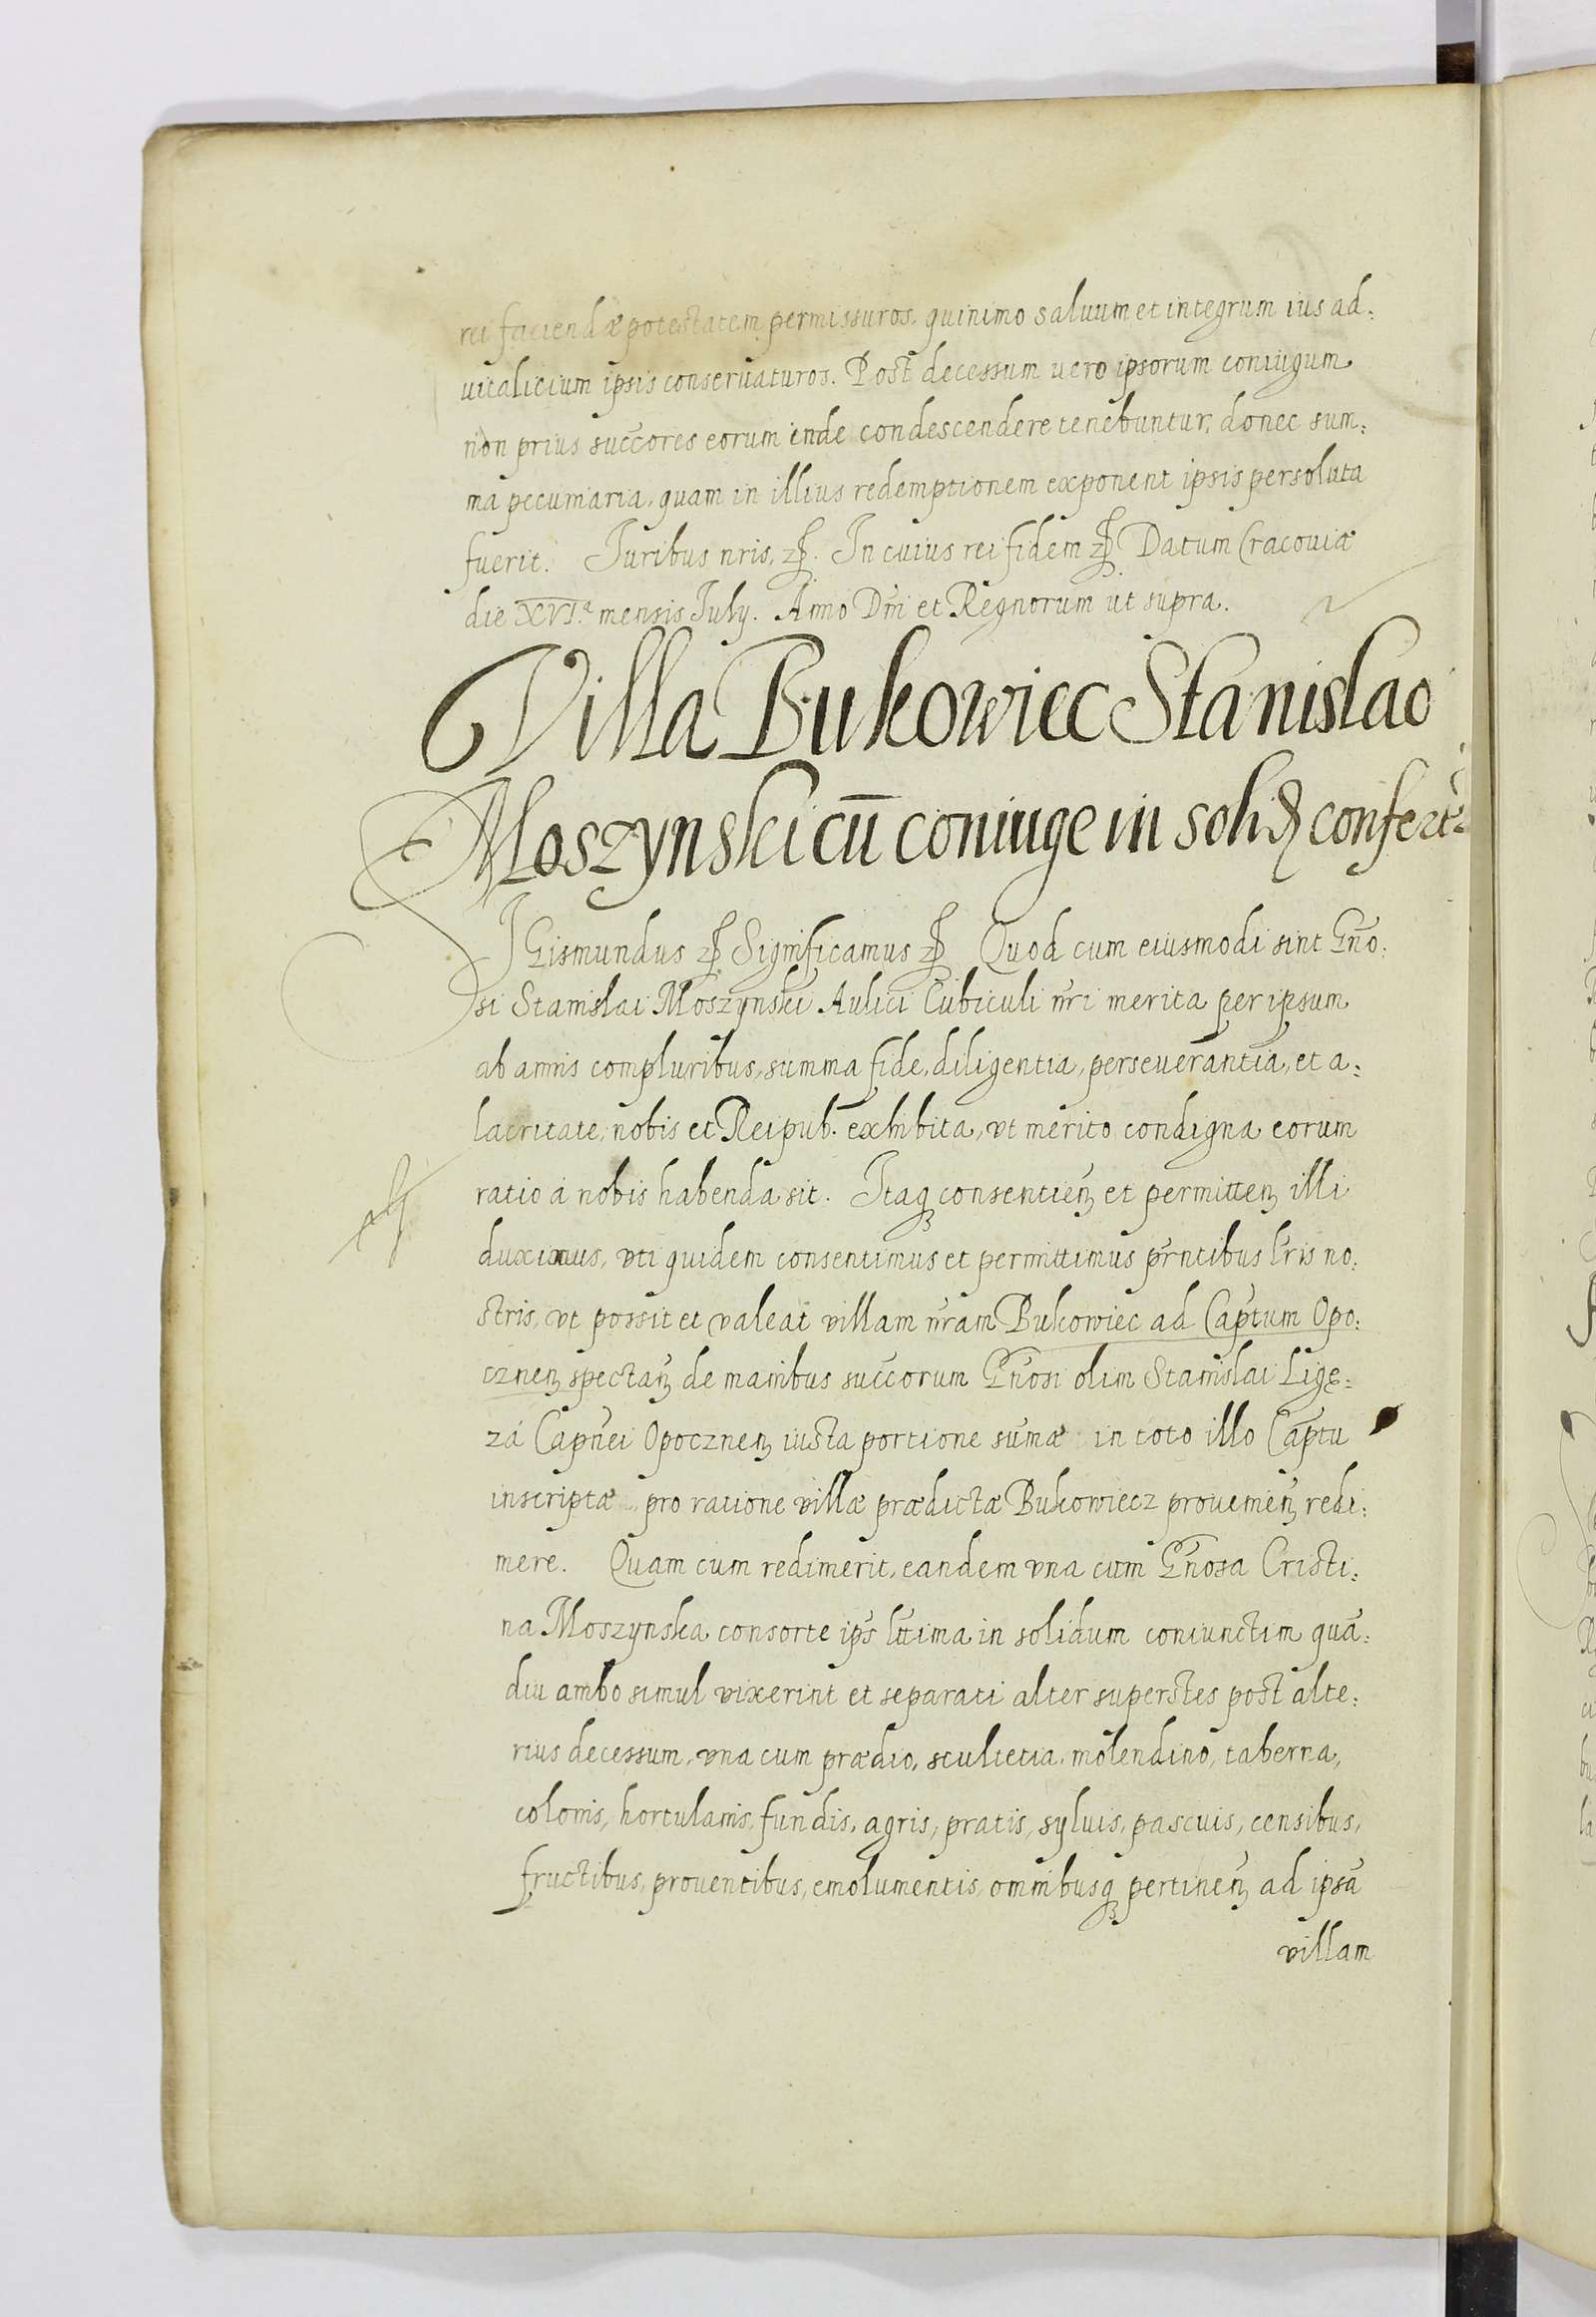 rei faciendæ potestatem permissuros, quinimo saluum et integrum ius ad:
uitalicium ipsis conseruaturos. Post decessum uero ipsorum coniugum
non prius succ̃ores eorum inde condescendere tenebuntur, donec sum:
ma pecuniaria, quam in illius redemptionem exponent ipsis persoluta
fuerit. Juribus nr̃is, ꝛꝭ. In cuius rei fidem ꝛꝭ Datum Cracouiæ
die XVI.ª mensis July. Anno Dñi et Regnorum ut supra.
Villa Bukowiec Stanislao
Moszynski cū coniuge in solidꝫ confertꝛ
SIGismundus ꝛꝭ Significamus ꝛꝭ Quod cum eiusmodi sint Gño:
si Stanislai Moszynski Aulici Cubiculi nr̃i merita per ipsum
ab annis compluribus, summa fide, diligentia, perseuerantia, et a:
lacritate, nobis et Reipub. exhibita, vt merito condigna eorum
ratio a nobis habenda sit. Itaqꝫ consentienꝫ et permittenꝫ illi
duximus, vti quidem consentimus et permittimus pr̃ntibus lr̃is no:
stris, vt possit et valeat villam nr̃am Bukowiec ad Cap̃tum Opo:
cznenꝫ spectanꝫ de manibus succ̃orum Gñosi olim Stanislai Ligę:
zá Capñei Opocznenꝫ iusta portione sum̃æ in toto illo Cap̃tu
inscriptæ pro ratione villæ prædictæ Bukowiecz prouenienꝫ redi:
mere. Quam cum redimerit, eandem vna cum Gñosa Cristi:
na Moszynska consorte ip̃s ltt̃ima in solidum coniunctim quā:
diu ambo simul vixerint et separati alter superstes post alte:
rius decessum, vna cum prædio, scultetia, molendino, taberna,
colonis, hortulanis, fundis, agris, pratis, syluis, pascuis, censibus,
fructibus, prouentibus, emolumentis, omnibusqꝫ pertinenꝫ ad ipsā
villam